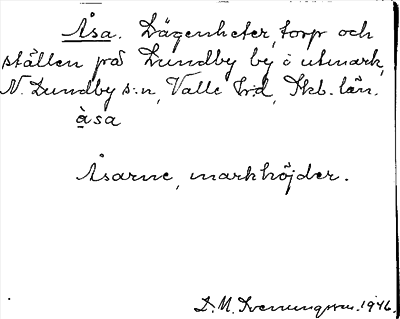 Åsa. Lägenheter, torp och
ställen på Lundby by i utmark,
N. Lundby s:n, Valle hd, Skb. län.
àsa
Åsarne, markhöjder.
D. M. 1946.